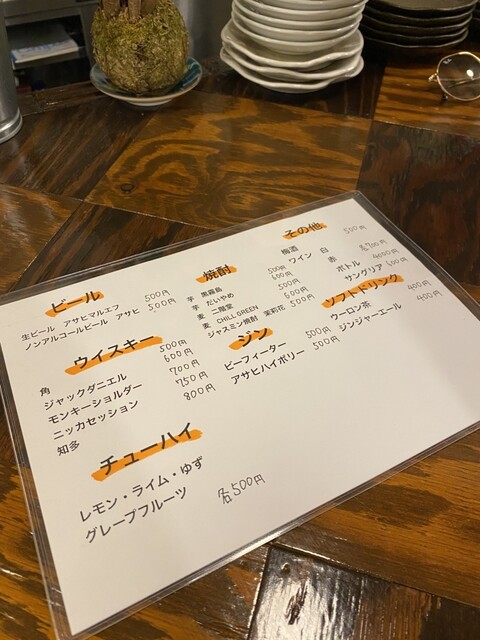 ビール
生ビール アサヒマルエフ 500円
ノンアルコールビール アサヒ 500円
ウイスキー
角 500円
ジャックダニエル 600円
モンキーショルダー 700円
ニッカセッション 750円
知多 800円
チューハイ
レモン・ライム・ゆず
グレープフルーツ 各500円
焼酎
芋 黒霧島 500円
芋 だいやめ 600円
麦 二階堂 500円
麦 CHILL GREEN 600円
ジャスミン焼酎 茉莉花 500円
ジン
ビーフィーター 500円
アサヒハイボリー 500円
その他
梅酒 500円
ワイン 白
赤 各700円
ボトル
サングリア 600円
ソフトドリンク
ウーロン茶 400円
ジンジャーエール 400円